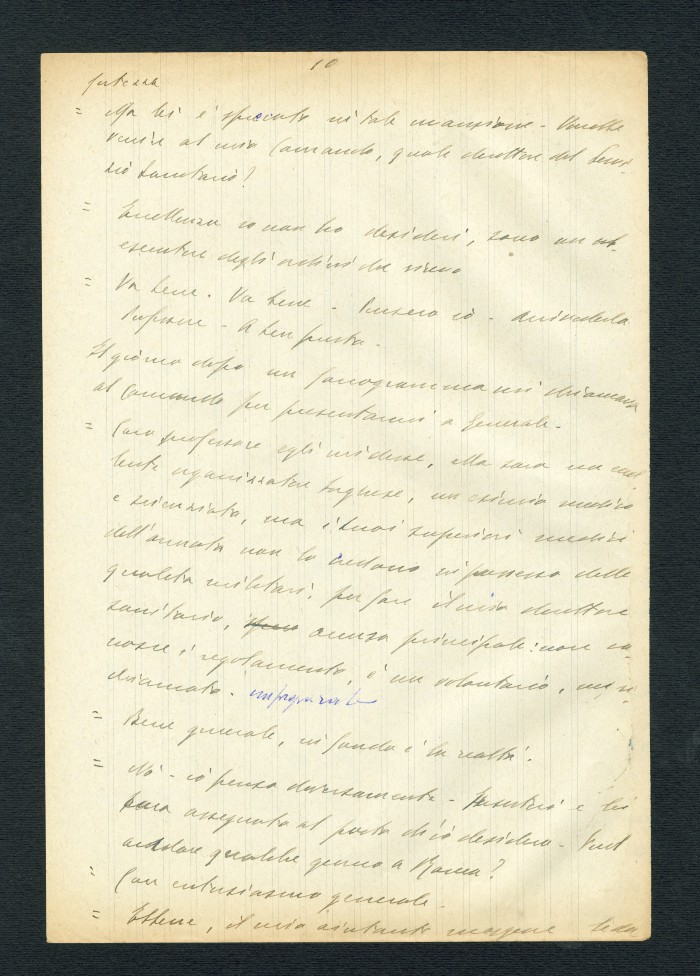 10
fortezza
= Ma lei è sprecato in tale mansione - Vorrebbe
venire al mio Comando, quale direttore del Servi-
zio Sanitario?
= Eccellenza io non ho desideri, sono un
esecutore degli ordini che ricevo
= Va bene. Va bene - Penserò io - Arrivederla
Professore - A ben presto -
Il giorno dopo un fonogramma mi chiamava
al Comando per presentarmi a Generale -
= Caro professore egli mi disse, Ella sarà un
organizzatore borghese, un esimio medico
e scienziato, ma i suoi superiori medici
dell'armata non la credono in possesso delle
qualità militari, per fare il mio direttore
sanitario, accusa principale: non co-
nosce i regolamenti, è un volontario,
chiamato. impreparato
= Bene generale, in fondo è la realtà.
= No - io penso diversamente - e lei
sarà assegnato al posto ch'io desidero - Vuol
andare qualche giorno a Roma?
= Con entusiasmo generale.
= Ebbene, il mio aiutante maggiore